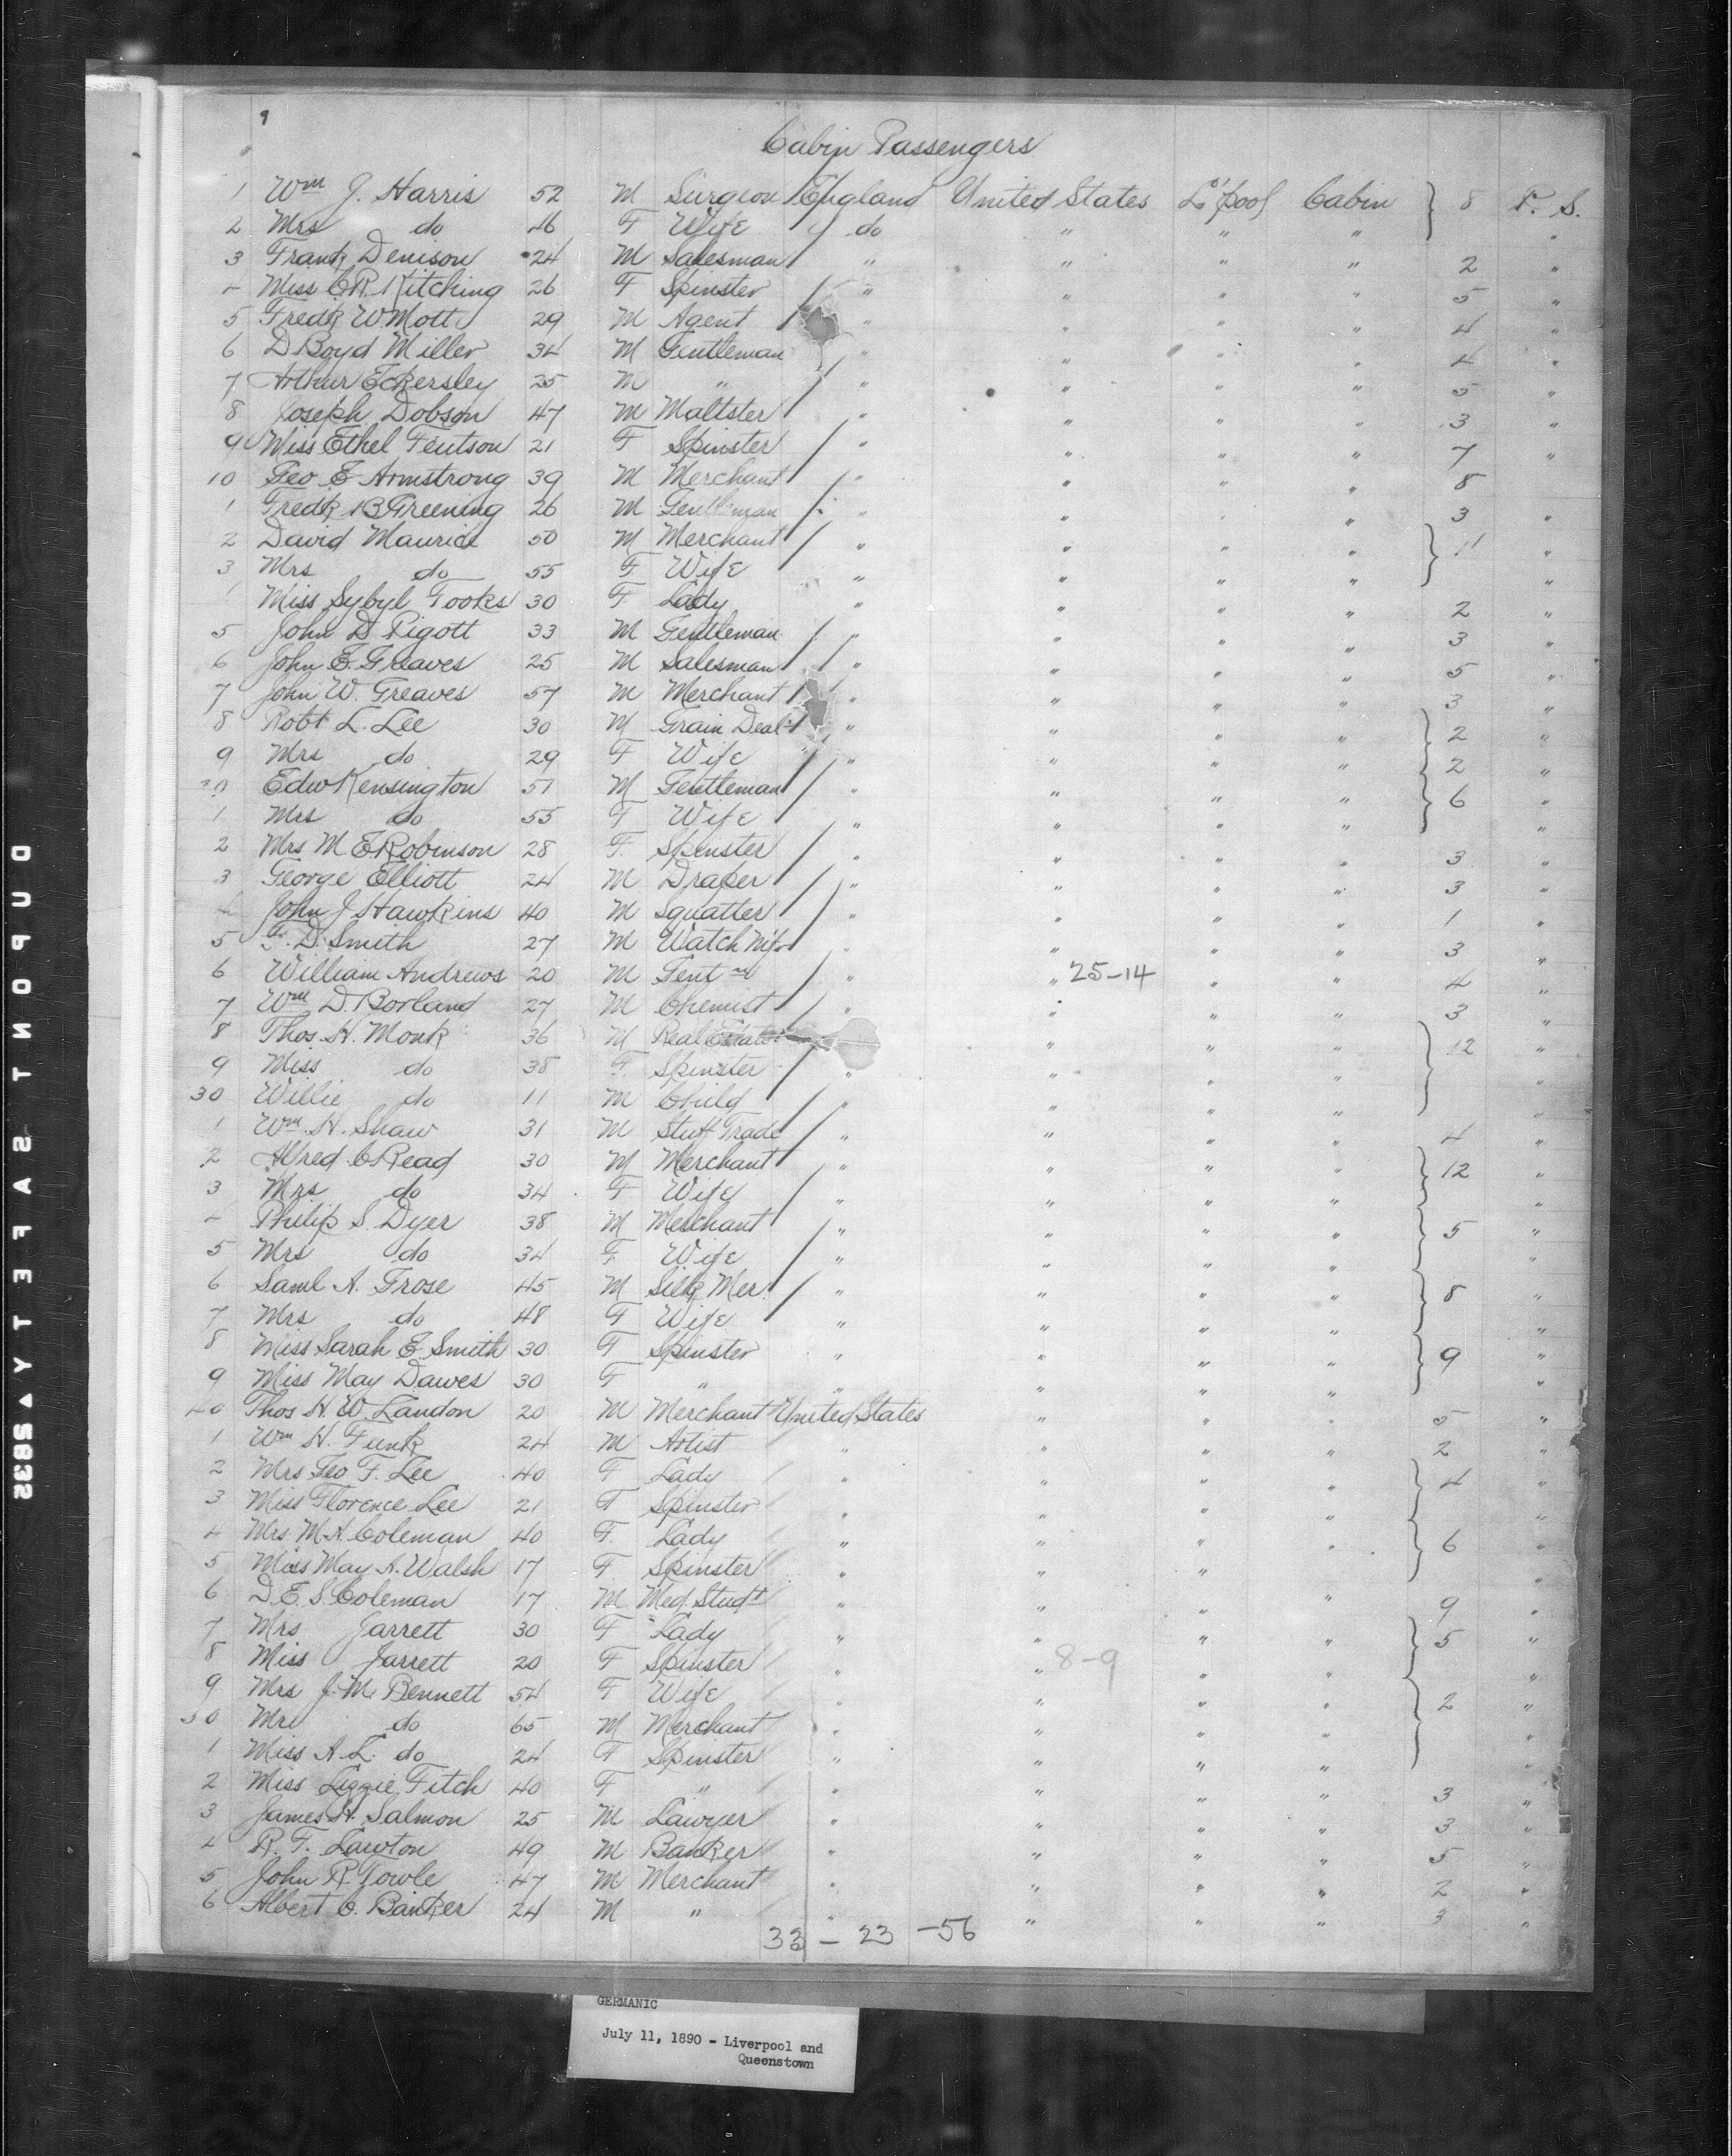 Cabin Passengers
1 Wm J. Harris 52 M Surgeon England United States L'pool Cabin 8 P. S.
2 Mrs do 46 F Wife do " " " "
3 Frank Denison 24 M Salesman " " " " 2 "
4 Miss C R Kitching 26 F Spinster " " " " 5 "
5 Fredk W Mott 29 M Agent " " " " 4 "
6 D Boyd Miller 34 M Gentleman " " " " 4 "
7 Arthur Eckersley 25 M " " " " " 5 "
8 Joseph Dobson 47 M Maltster " " " " 3 "
9 Miss Ethel 21 F Spinster " " " " 7 "
10 Geo E Armstrong 39 M Merchant " " " " 8
1 Fredk B Greening 26 M Gentleman " " " " 3 "
2 David Maurice 50 M Merchant " " " " 11 "
3 Mrs do 55 F Wife " " " " "
Miss Sybyl Tooks 30 F Lady " " " " 2 "
5 John D Pigott 33 M Gentleman " " " " 3 "
6 John E. Greaves 25 M Salesman " " " " 5 "
7 John W. Greaves 57 M Merchant " " " " 3 "
8 Robt L. Lee 30 M Grain Deal " " " " 2 "
9 Mrs do 29 F Wife " " " " 2 "
20 Edw Kensington 51 M Gentleman " " " " 6 "
1 Mrs do 55 F Wife " " " " "
2 Mrs M. E Robinson 28 F. Spinster " " " " 3 "
3 George Elliott 24 M Draper " " " " 3 "
4 John J Hawkins 40 M Squatter " " " " 1 "
5 D. Smith 27 M Watch Mfr " " " " 3 "
6 William Andrews 20 M Gent " " 25-14 " " 4 "
7 Wm D. Borland 27 M Chemist " " " " 3 "
8 Thos. H. Monk 36 M Real Estate " " " 12 "
9 Miss do 38 F Spinster " " " " "
30 Willie do 11 M Child " " " " "
1 Wm. H. Shaw 31 M Stuff Trade " " " " 4 "
2 Alfred C Read 30 M Merchant " " " " 12 "
3 Mrs do 34 F Wife " " " " "
4 Philip S. Dyer 38 M Merchant " " " " 5 "
5 Mrs do 34 F Wife " " " " "
6 Saml A. Grose 45 M Silk Mer. " " " " 8 "
7 Mrs do 48 F Wife " " " " "
8 Miss Sarah E Smith 30 F Spinster " " " " 9 "
9 Miss May Dawes 30 F " " " " " "
40 Thos H. W. Landon 20 M Merchant United States " " " 5 "
1 Wm H. Funk 24 M Artist " " " " 2 "
2 Mrs Geo F. Lee 40 F Lady " " " " 4 "
3 Miss Florence Lee 21 F Spinster " " " " "
4 Mrs M. A. Coleman 40 F. Lady " " " " 6 "
5 Miss May A. Walsh 17 F Spinster " " " "
6 D. E. S. Coleman 17 M Med. Studt " " " " 9 "
7 Mrs Jarrett 30 F Lady " " " " 5 "
8 Miss Jarrett 20 F Spinster " " 8-9 " " "
9 Mrs J. M. Bennett 54 F Wife " " " " 2 "
50 Mr do 65 M Merchant " " " " "
1 Miss A. L. do 24 F Spinster " " " " "
2 Miss Lizzie Fitch 40 F " " " " " 3 "
3 James H. Salmon 25 M Lawyer " " " " 3 "
4 R. F. Lawton 49 M Banker " " " " 5 "
5 John R. Towle 47 M Merchant " " " " 2 "
6 Albert C. Banker 24 M " " " " " 3 "
33 - 23 - 56
GERMANIC
July 11, 1890 - Liverpool and
Queenstown
DUPONT SAFETY 2835